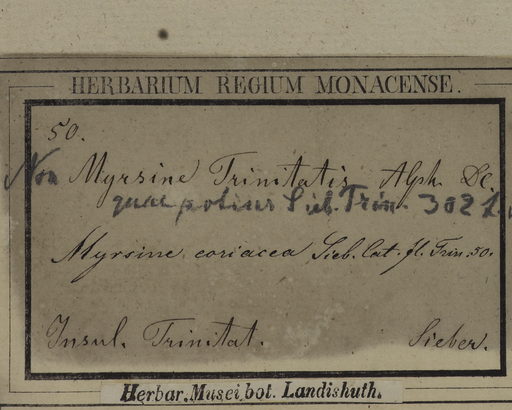 HERBARIUM REGIUM MONACENSE.
50.
Non Myrsine Trinitatis Alph. DC
quae potius Sieb. Trin. 302
Myrsine coriacea Sieb. Cat. fl. Trin. 50.
Insul. Trinitat. Sieber.
Herbar. Musei bot. Landishuth.